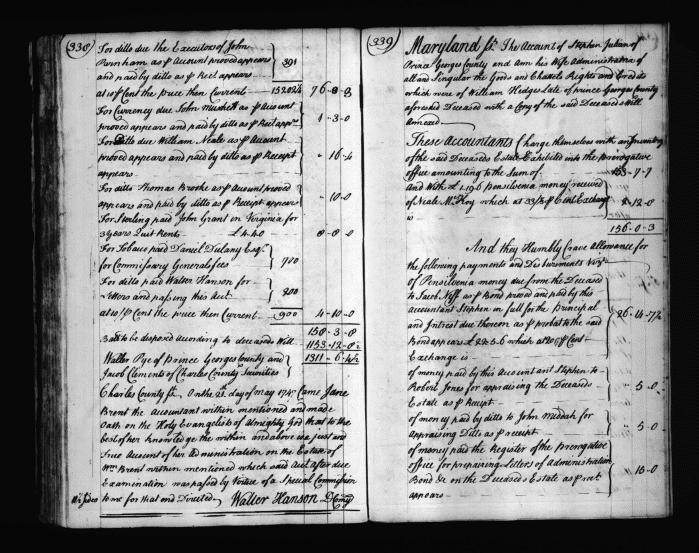 338
For ditto due the Executors of John
Burnham as ℔ Account proved appears
and paid by ditto as ℔ Rect appears - 391
at 10/ ℔ Cent the price then Current - 15202½ 76-0-3
For Currency due John Muskett as ℔ Account
proved appears and paid by ditto as ℔ Rect apprs 1-3-0
For Ditto due William Neale as ℔ Account
proved appears and paid by ditto as ℔ Receipt " 16-4
appears
For ditto Thomas Brooke as ℔ Account proved
appears and paid by ditto as ℔ Receipt appears " 10-0
For Sterling paid John Grant on Virginia for
3 years Quit Rents - £4.4.0 8-8-0
For Tobacco paid Daniel Dulany Esqr.
for Commissary Generals fees 700
For ditto paid Walter Hanson for
Letters and passing this Acct 200
at 10/ ℔ Cent the price then Current - 900 4-10-0
158-3-8
Ball. to be disposed According to deceaseds Will 1153-12-8½
Walter Pye of Prince Georges County and 1311-6-4½
Jacob Clements of Charles County Securities
Charles County ss. On the 28th day of May 1747 Came Jane
Brent the Accountant within mentioned and made
Oath on the Holy Evangelists of Almighty God that to the
best of her knowledge the within and above is a just and
True Account of her Administration on the Estate of
Wm. Brent within mentioned which said Acct after due
Examination was passed by Virtue of a Special Commission
to me for that end Directed Walter Hanson D Comy
339
Maryland ss. The Account of Stephen Julian of
Prince Georges County and Ann his Wife Administratrix of
all and Singular the Goods and Chattels Rights and Credits
which were of William Hedges Late of prince Georges County
aforesaid Deceased with a Copy of the said Deceaseds Will
Annexed
These Accountants Charge themselves with an Inventory
of the said Deceaseds Estate Exhibited into the prerogative
office amounting to the Sum of 153-7-7
And With £ pensilvania money received
of Neale McKoy which at 33⅓ ℔ Cent Exchange 2-12-0
is
156-0-3
And they Humbly Crave Allowance for
the following payments and Disbursements Vizt.
Of Pensilvenia money due from the Deceased
to Jacob Neff as ℔ Bond proved and paid by this
Accountant Stephen in full for the Principal 26-14-7½
and Intrest due thereon as ℔ probat to the said
Bond appears £ 22.5.6 which at 20 ℔ Cent
Exchange is -
of money paid by this Accountant Stephen to
Robert Jones for appraising the Deceaseds " 5-0
Estate as ℔ Receipt
of money paid by ditto to John Middah for
Appraising Ditto as ℔ receipt " 5-0
of money paid the Register of the prerogative
office for preparing Letters of Administration
Bond &c on the Deceaseds Estate as ℔ rect. " 15-0
appears